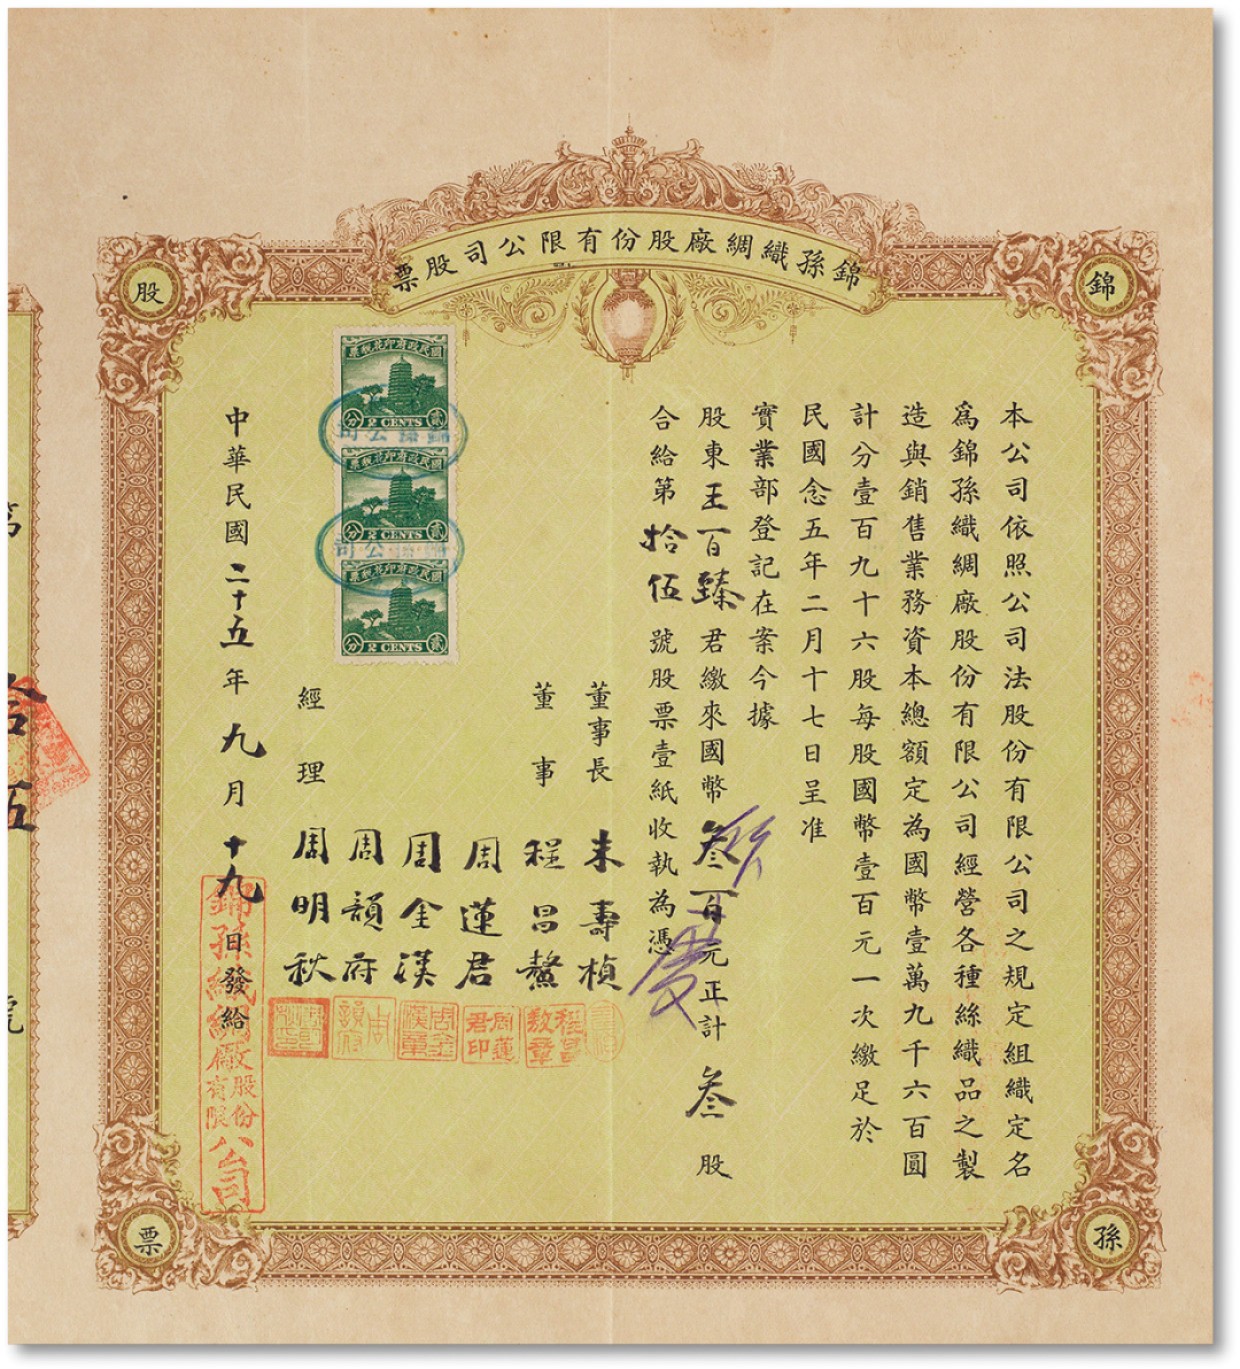 錦孫織綢廠股份有限公司股票
錦
孫
股
票
本公司依照公司法股份有限公司之規定組織定名
爲錦孫織綢廠股份有限公司經營各種絲織品之製
造與銷售業務資本總額定為國幣壹萬九千六百圓
計分壹百九十六股每股國幣壹百元一次繳足於
民國念五年二月十七日呈准
實業部登記在案今據
股東王百臻君繳來國幣叁百元正計叁股
合給第拾伍號股票壹紙收執為憑
董事長 朱壽楨
董事 程昌鰲
周蓮君
周金漢
周韻府
經理 周明秋
國民政府印花稅票
貳分 2 CENTS
國民政府印花稅票
貳分 2 CENTS
國民政府印花稅票
貳分 2 CENTS
中華民國二十五年九月十九日發給
錦孫織綢廠股份有限公司
程昌
周蓮君印
周金漢章
周韻府
拾伍號